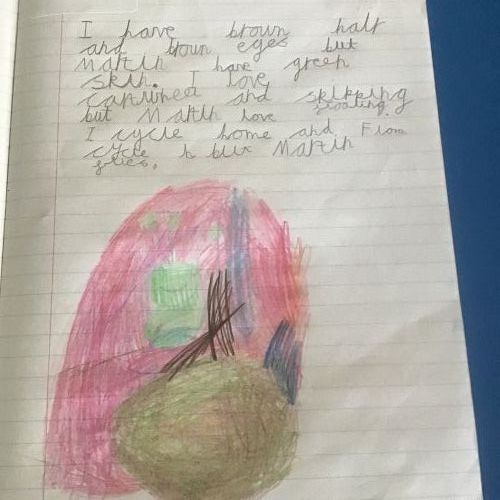 I have brown hair
and broun eges but
Martin have green
skin. I love
carwheel and skipping
but Martin love floating.
I cycle home and From
cycle h but Martin
flies.